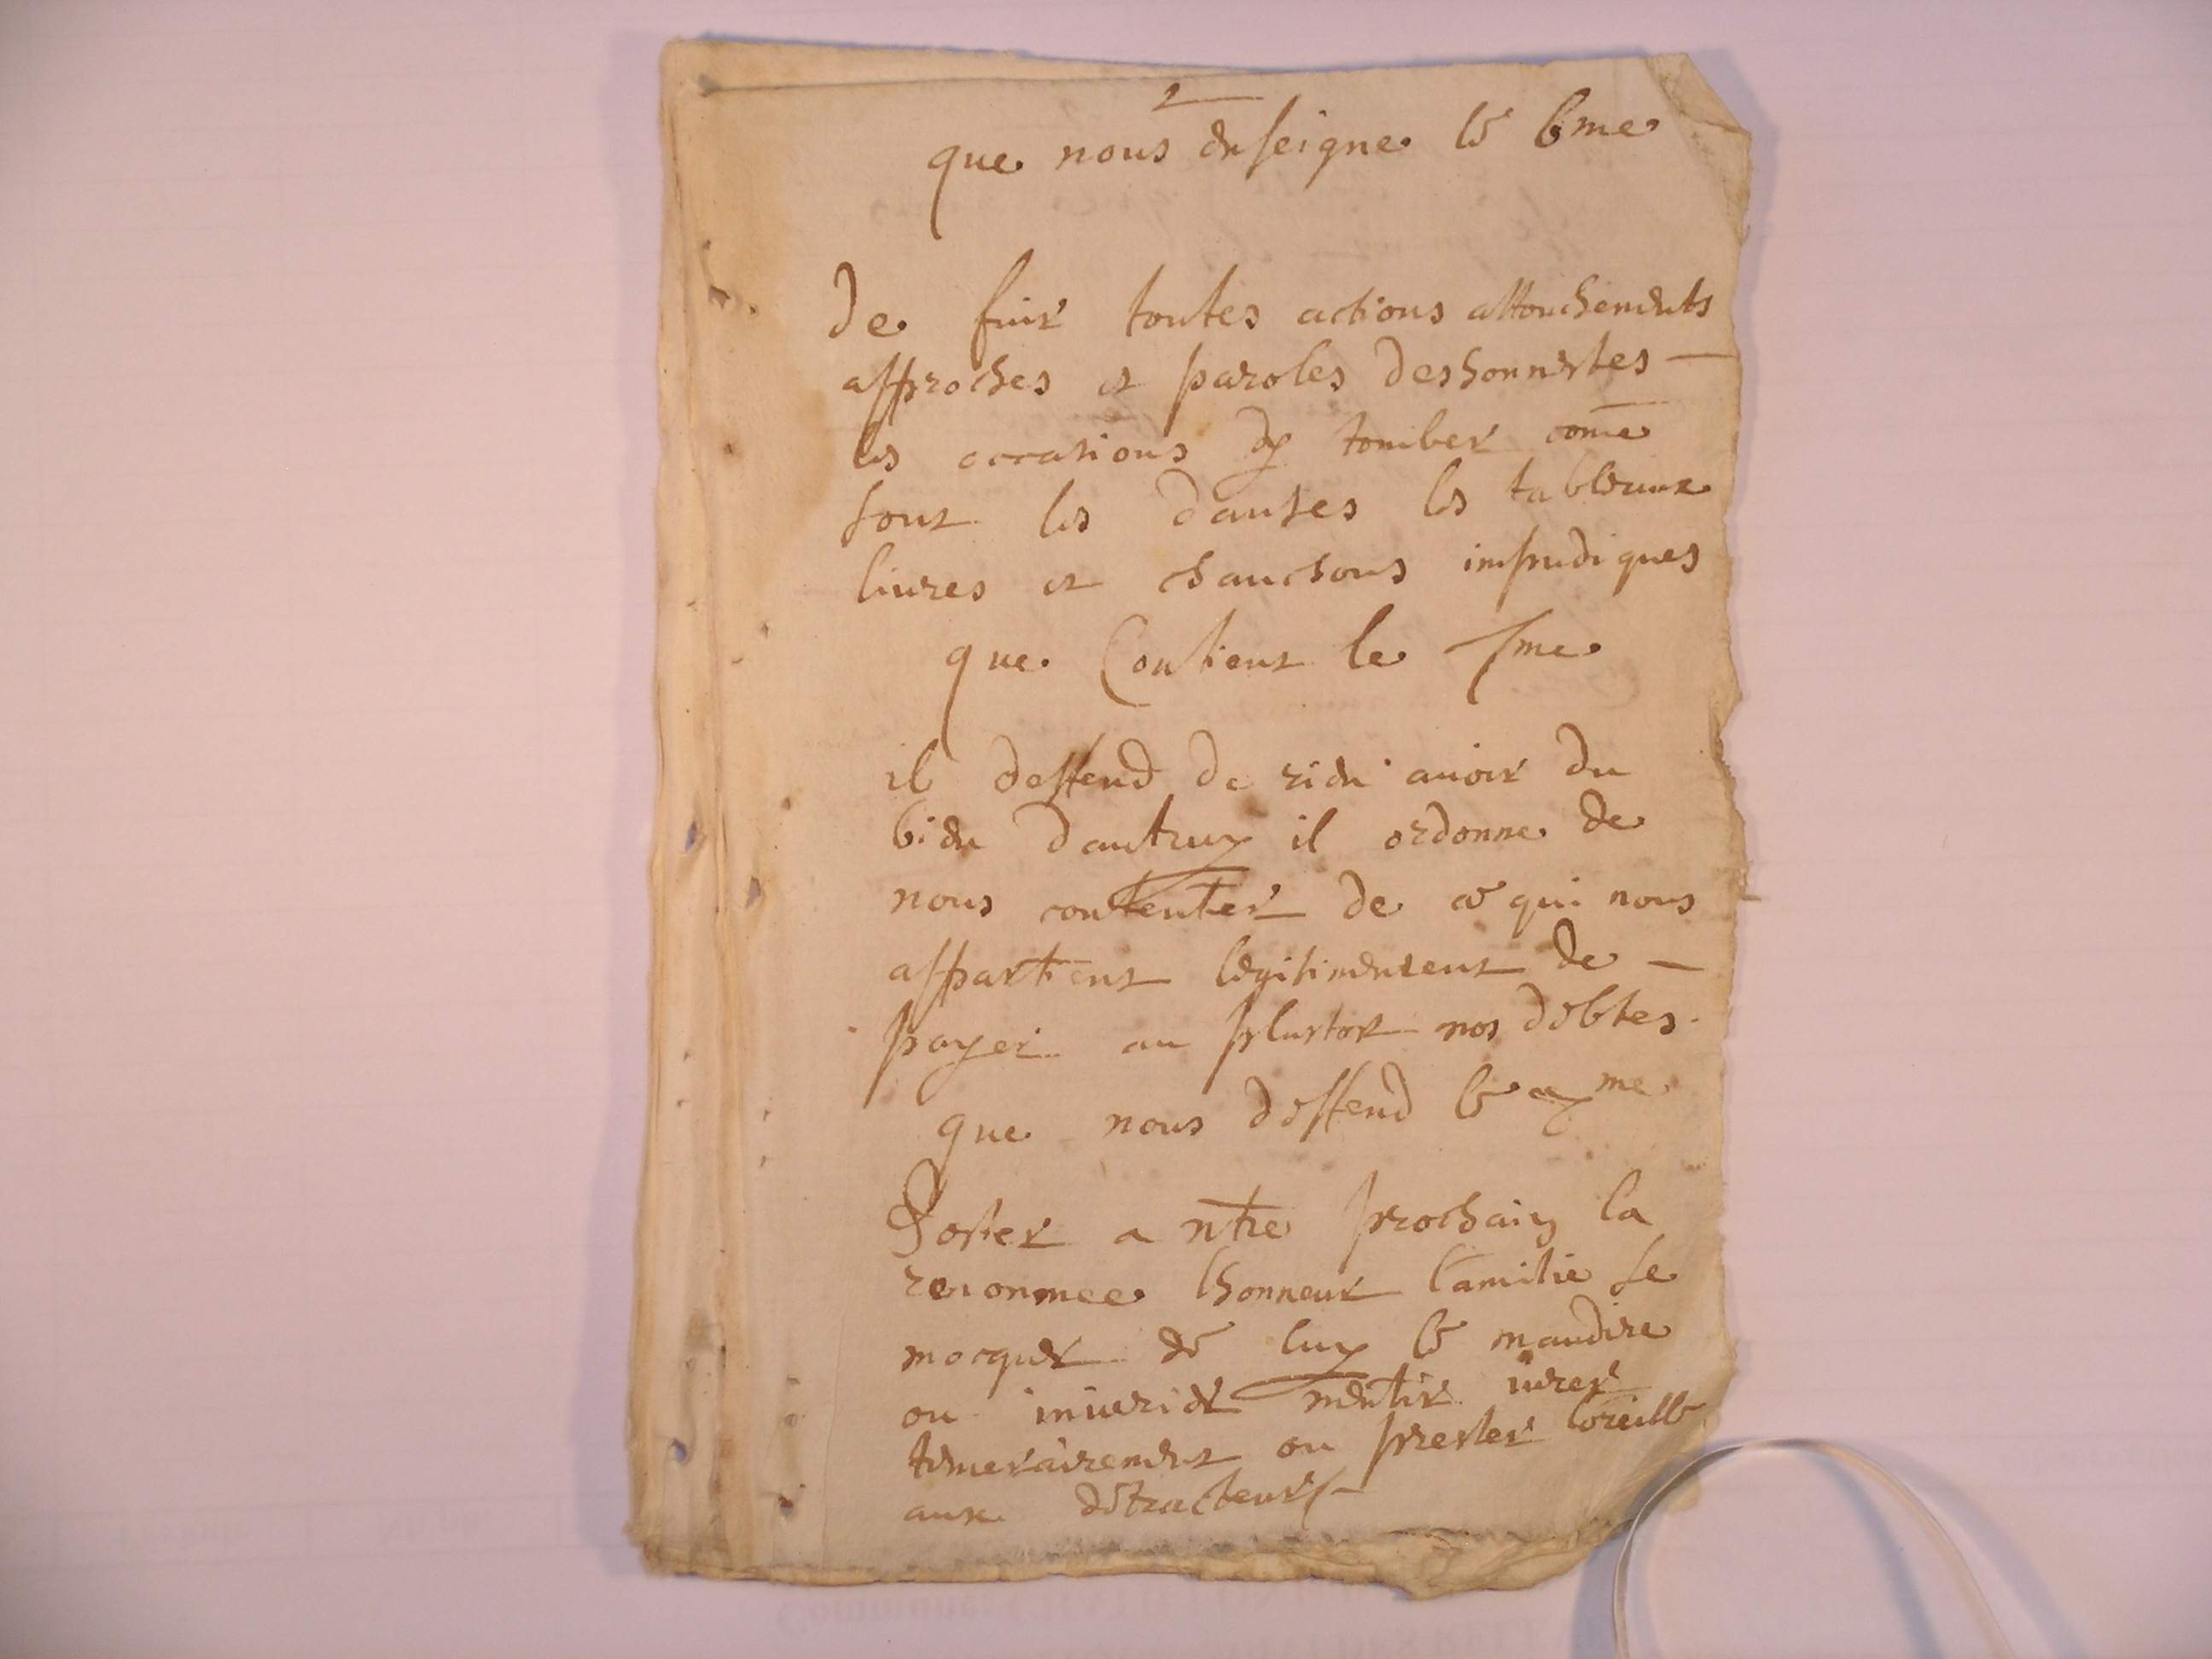 2
que nous enseigne le 6me
De fuir toutes actions attouchements
approches et paroles deshonnestes
les occasions dy tomber come
sont les danses les tableaux
liures et chansons impudiques
que Contient le 7me
il deffend de rien auoir du
bien dautruy il ordonne de
nous contenter de ce qui nous
appartient legitimement de
payer au plustost nos debtes.
que nous deffend le me
Doster a ntre prochain la
renommee lhonneur lamitie se
mocquer de luy le maudire
ou iniurier mentir iurer
temerairement ou prester loreille
aux detracteurs